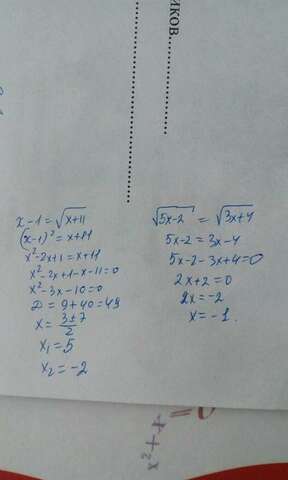 иков.
x-1=√x+11
(x-1)²=x+11
x²-2x+1=x+11
x²-2x+1-x-11=0
x²-3x-10=0
D=9+40=49
x=3±7/2
x₁=5
x₂=-2
√5x-2=√3x+4
5x-2=3x-4
5x-2-3x+4=0
2x+2=0
2x=-2
x=-1.